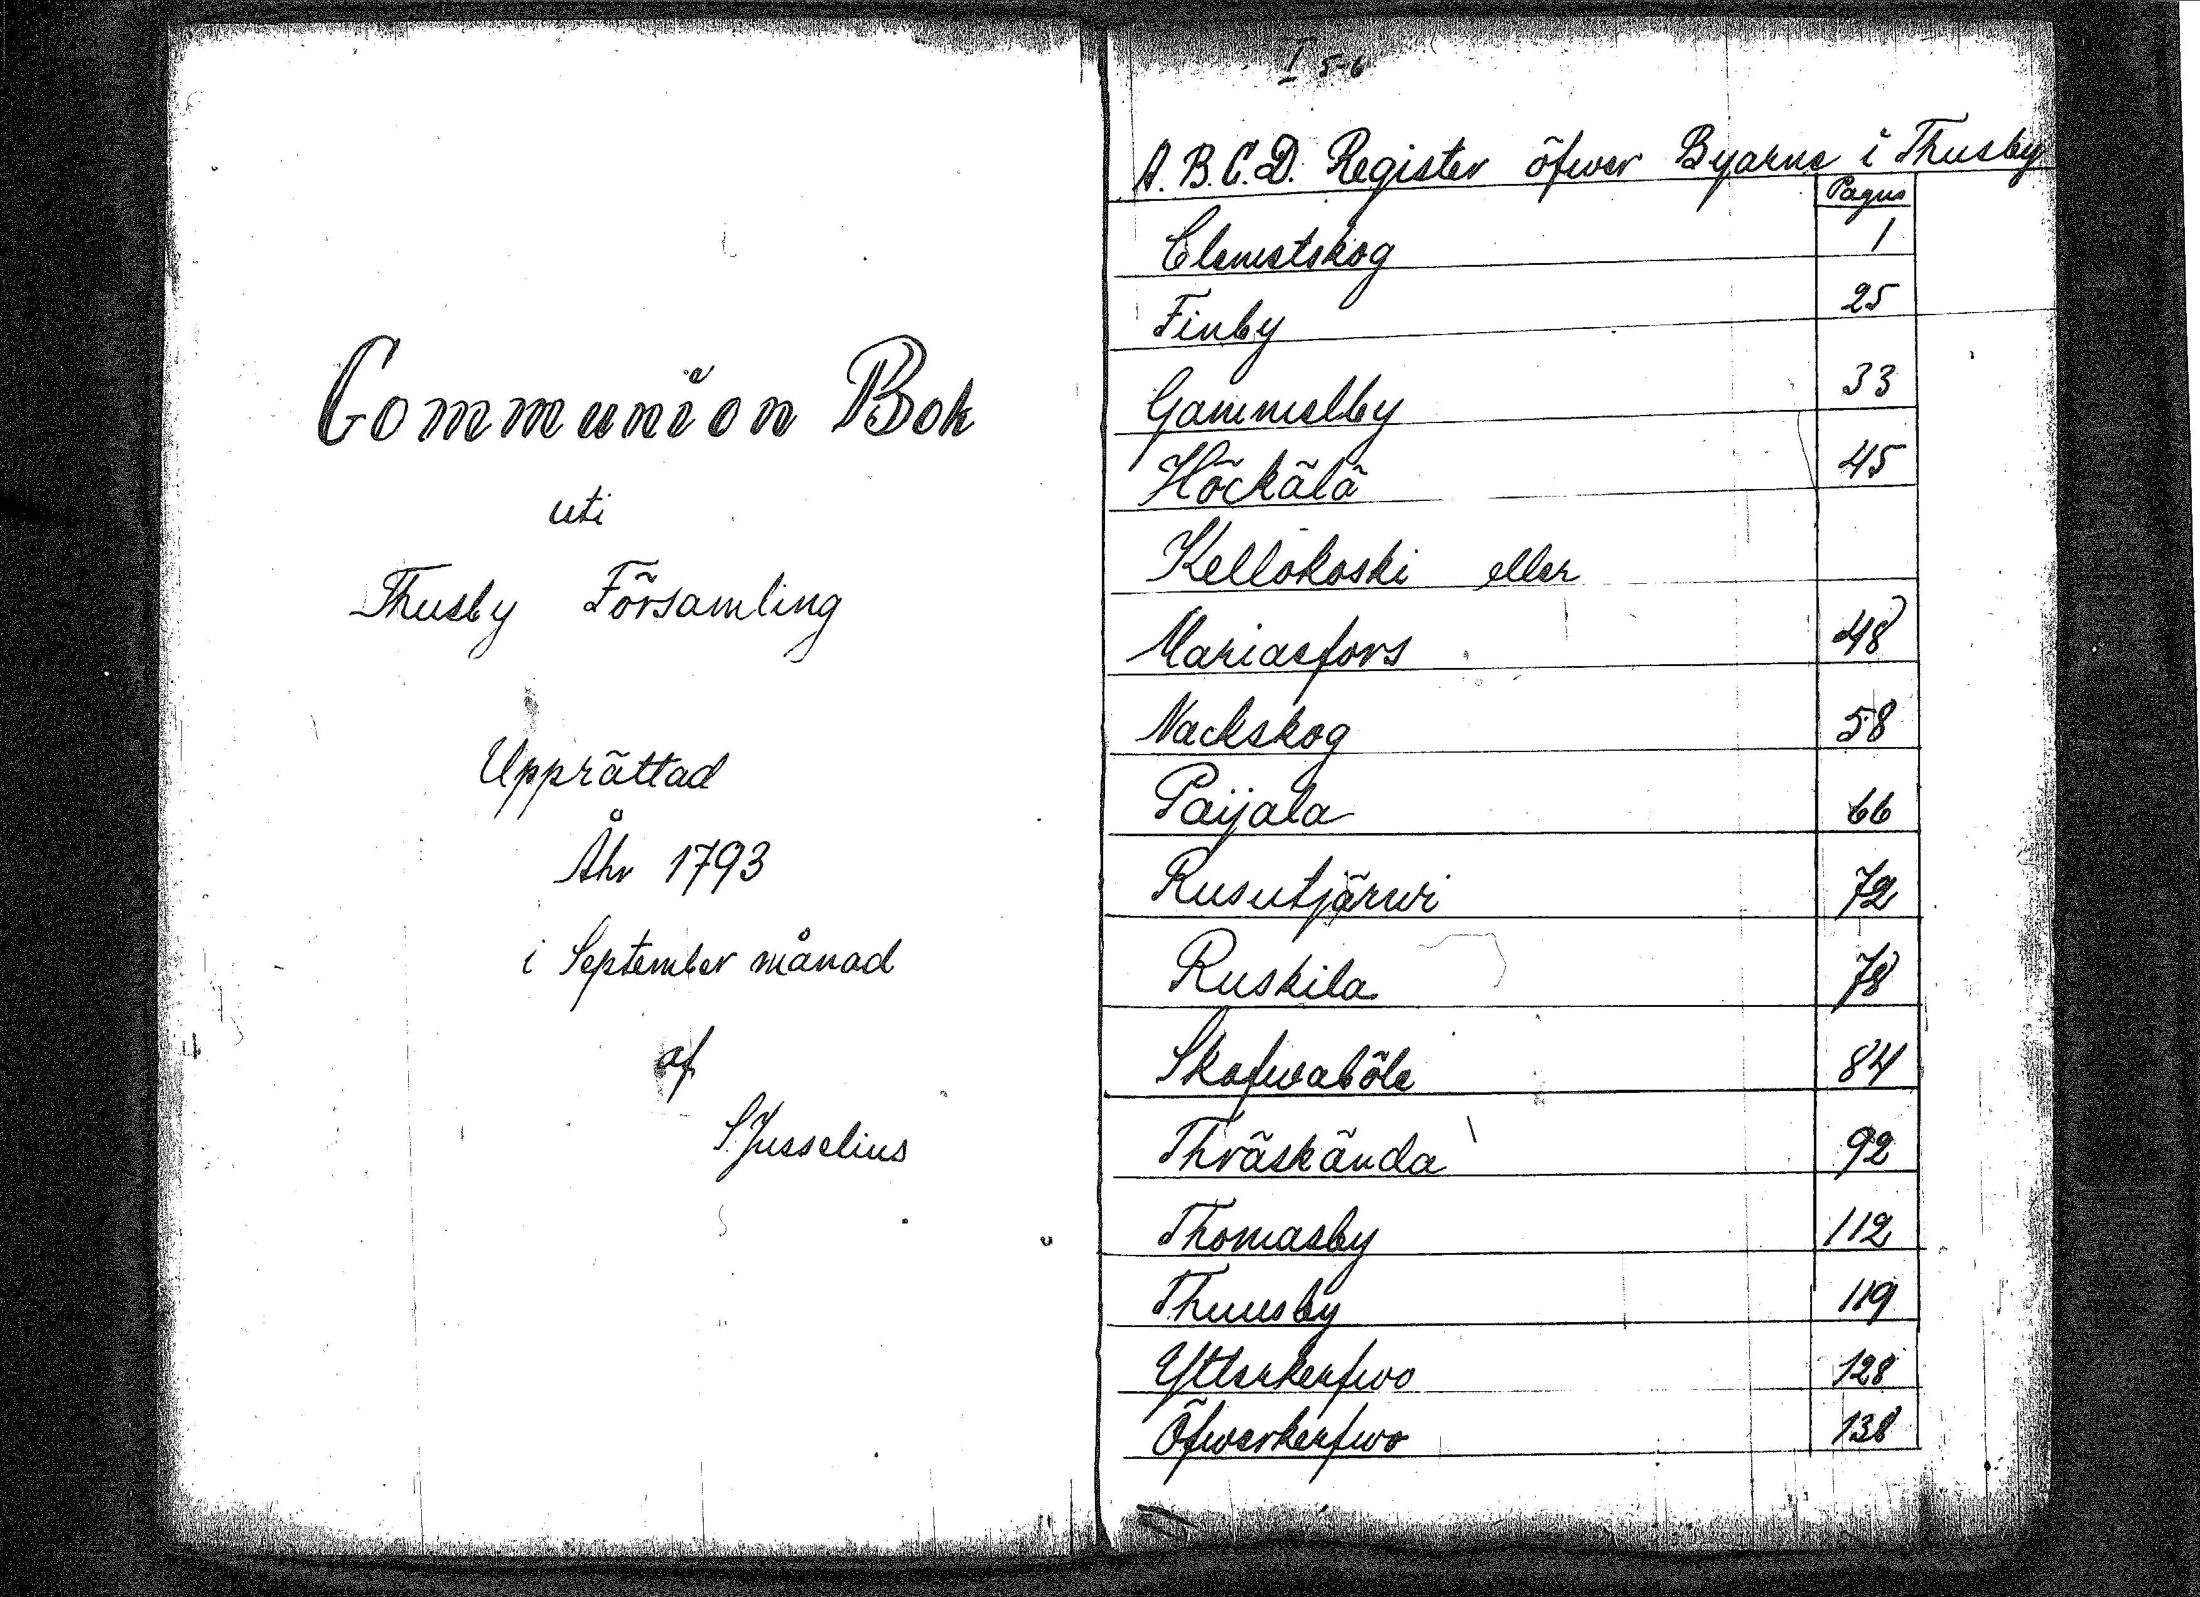 Communion Bok
uti
Thusby Församling
Upprättad
Åhr 1793
i September månad
af
S. Jusselius
I 5-6
A. B. C. D. Register öfwer Byarne i Thusby
Pagus
Clemetskog 1
Finby 25
Gammelby 33
Höckälä 45
Kellokoski eller
Mariaefors 48
Nackskog 58
Paijala 66
Rusutjärwi 72
Ruskila 78
Skafwaböle 84
Thräskända 92
Thomasby 112
Thuusby 119
Ytterkerfwo 128
Öfwerkerfwo 138